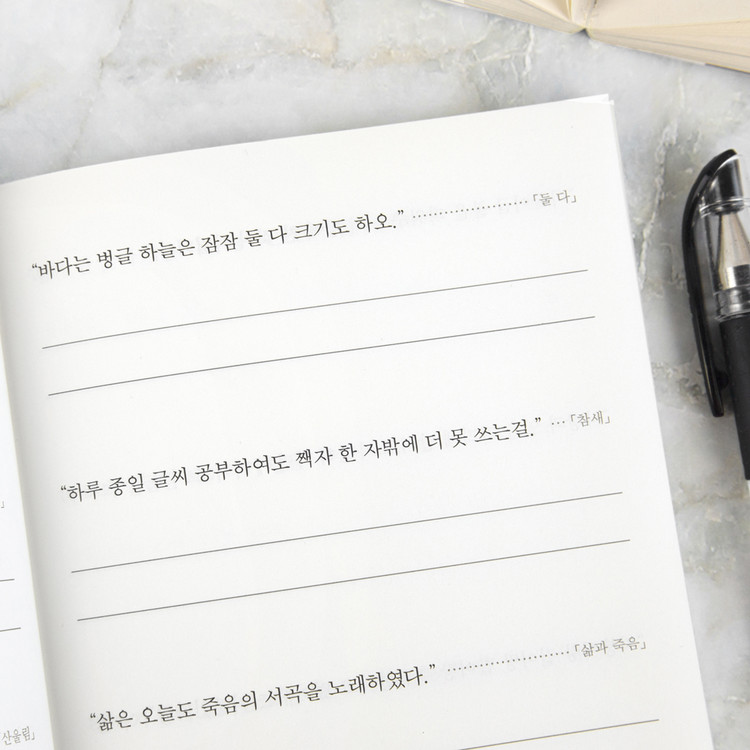 “바다는 벙글 하늘은 잠잠 둘 다 크기도 하오.” ······················ 「둘 다」
“하루 종일 글씨 공부하여도 짹자 한 자밖에 더 못 쓰는걸.” ··· 「참새」
“삶은 오늘도 죽음의 서곡을 노래하였다.” ······················· 「삶과 죽음」
산울림」